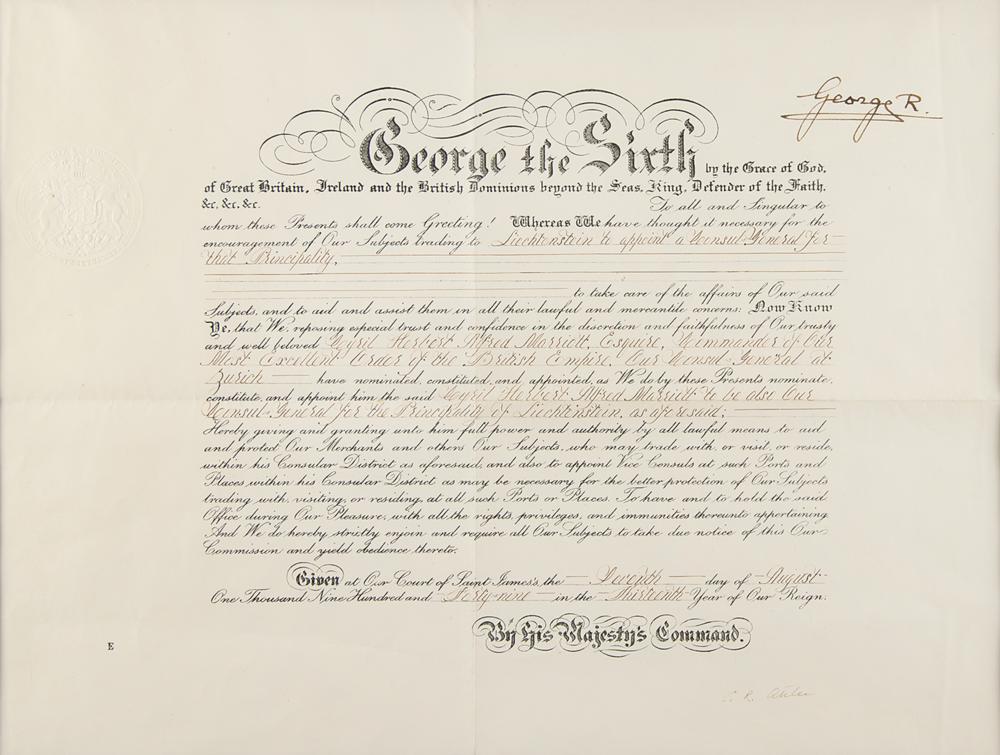 George R.
George the Sixth by the Grace of God,
of Great Britain, Ireland and the British Dominions beyond the Seas, King, Defender of the Faith,
&c. &c. &c. To all and Singular to
whom these Presents shall come Greeting! Whereas We have thought it necessary for the
encouragement of Our Subjects trading to Liechtenstein to appoint a Consul-General for
that Principality,
to take care of the affairs of Our said
Subjects, and to aid and assist them in all their lawful and mercantile concerns: Now Know
Ye, that We, reposing especial trust and confidence in the discretion and faithfulness of Our trusty
and well beloved Cyril Herbert Alfred Marriott, Esquire, Commander of Our
Most Excellent Order of the British Empire, Our Consul-General at
Zurich have nominated, constituted, and appointed, as We do by these Presents nominate,
constitute, and appoint him the said Cyril Herbert Alfred Marriott to be also Our
Consul-General for the Principality of Liechtenstein, as aforesaid;
Hereby giving and granting unto him full power and authority by all lawful means to aid
and protect Our Merchants and others Our Subjects, who may trade with, or visit, or reside,
within his Consular District as aforesaid, and also to appoint Vice Consuls at such Ports and
Places within his Consular District as may be necessary for the better protection of Our Subjects
trading with, visiting, or residing, at all such Ports or Places. To have and to hold the said
Office during Our Pleasure, with all the rights, privileges, and immunities thereunto appertaining.
And We do hereby strictly enjoin and require all Our Subjects to take due notice of this Our
Commission and yield obedience thereto.
Given at Our Court of Saint James's, the day of August
One Thousand Nine Hundred and Forty-nine in the Thirteenth Year of Our Reign.
By His Majesty's Command.
E